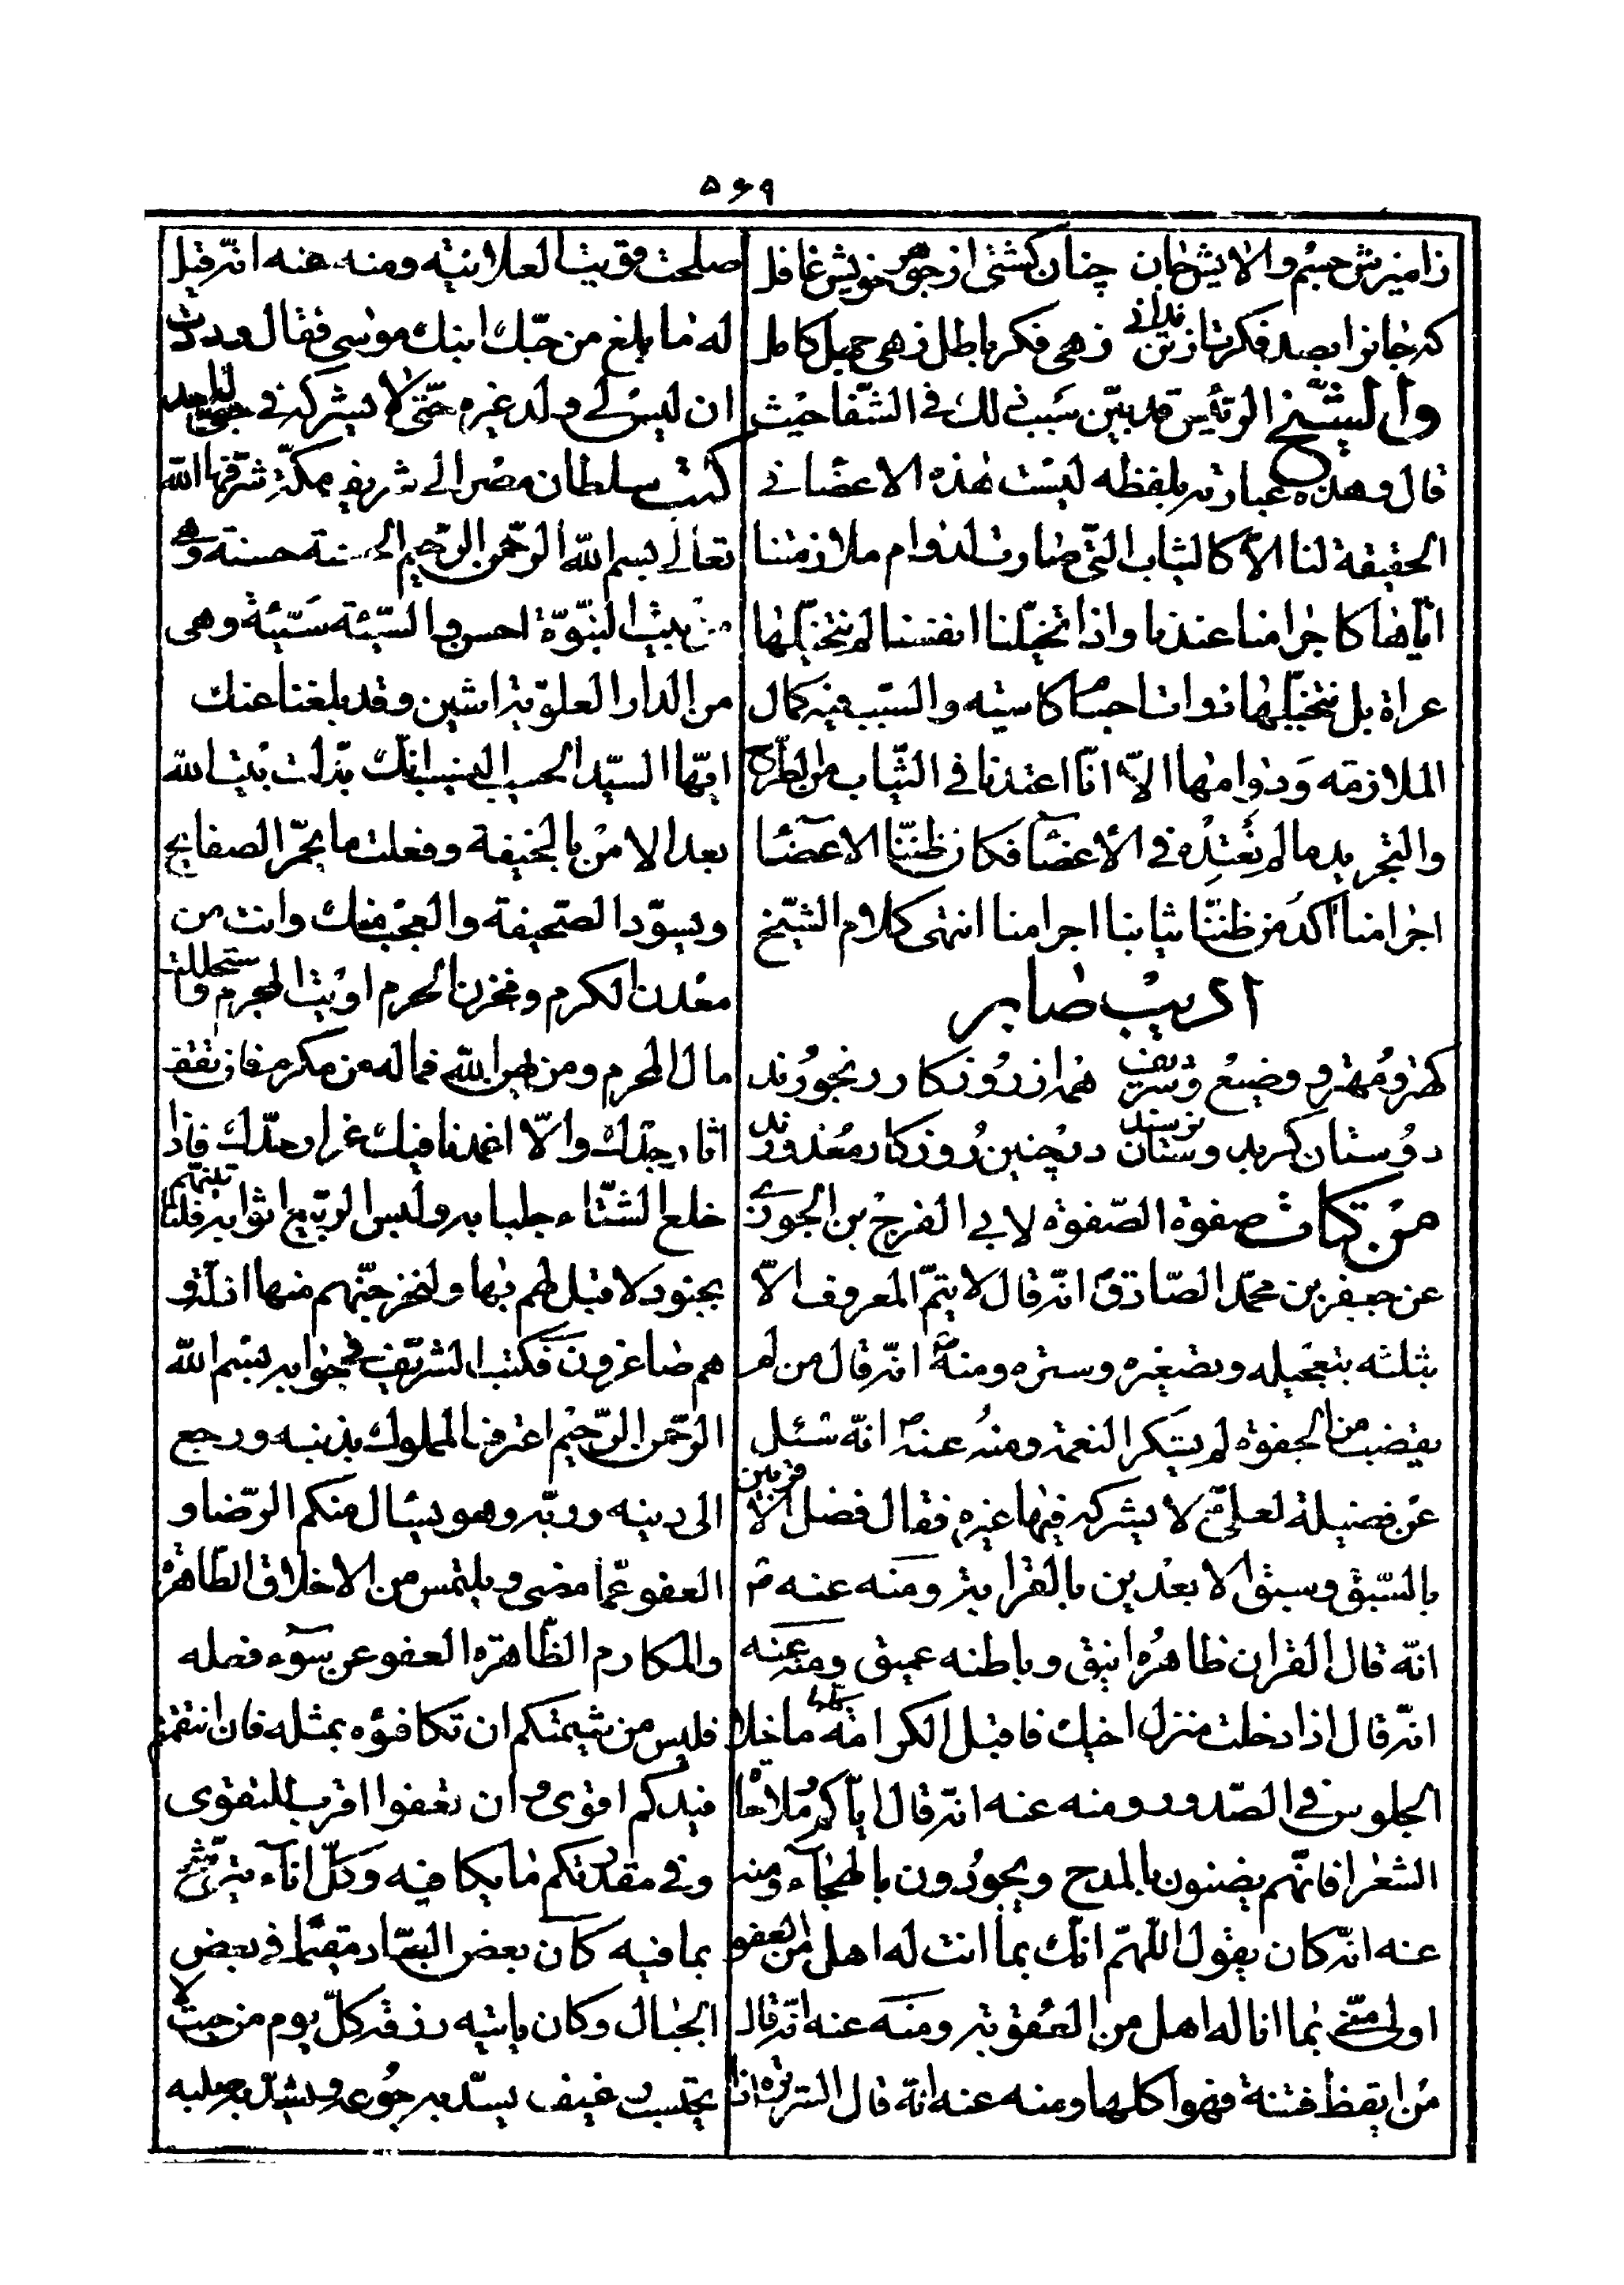 ۵۶۹
زامیزش جسم والایش جان چنان گشتی از جوهر خویش غافل
که جانرا بصد فکرتاز تن ندانی زهی فکر باطل زهی جهل کامل
والشیخ الرئیس قد بین سبب ذلك فی الشفا حیث
قال وهذه عبارته بلفظه لیست هذه الاعضا فی
الحقیقة لنا الا کالثیاب التی صارت لدوام ملازمتنا
ایاها کاجرامنا عندنا واذا تخیلنا انفسنا لم نتخیلها
عراة بل نتخیلها ذوات اجسام کاسیته والسبب فیه کمال
الملازمته ودوامها الا انا اعتدنا فی الثیاب من الطرح
والتجرید ما لم نعتده فی الاعضا فکان ظننا الاعضا
اجرامنا اکد من ظننا ثیابنا اجرامنا انتهی کلام الشیخ
ادیب صابر
کهتر و مهتر و وضیع و شریف همه از روزکار رنجورند
دوستان گر بدوستان نرسند در چنین روزکار معذورند
من کتاب صفوة الصفوة لابی الفرج بن الجوزی
عن جعفر بن محمد الصادق انه قال لا یتم المعروف الا
بثلثه بتعجیله وبصغیره وستره ومنه انه قال من لم
یغضب من الجفوه لم یشکر النعمة ومنه عنه انه سئل
عن فضیلة لعلی ع لا یشرکه فیها غیره فقال فضل الاقربین
بالسبق وسبق الابعدین بالقرابته ومنه عنه
انه قال القران ظاهره انیق وباطنه عمیق ومنه عنه
انه قال اذا دخلت منزل اخیك فاقبل الکرامة کلها ما خلا
الجلوس فی الصدور ومنه عنه انه قال ایاکم وملاحاة
الشعرا فانهم یضنون بالمدح ویجودون بالهجاء ومنه
عنه انه کان یقول اللهم انك بما انت له اهل من العفو
اولی منی بما انا له اهل من العقوبته ومنه عنه انه قال
من ایقظ فتنة فهو اکلها ومنه عنه انه قال السریره اذا
صلحت قویت العلانیته ومنه عنه انه قیل
له ما بلغ من حبك ابنك موسی فقال وددت
ان لیس لی ولد غیره حتی لا یشرکه فی حبی له احد
کتب سلطان مصر الی شریف مکة شرفها الله
تعالی بسم الله الرحمن الرحیم الحسنة حسنة وهی
من بیت النبوة احسن والسیئة سیئة وهی
من الدار العلویته اشین وقد بلغنا عنك
ایها السید الحسیب النسیب انك بدلت بیت الله
بعد الامن بالخیفة وفعلت ما یحمر الصفایح
ویسود الصحیفة والعجب منك وانت من
معدن الکرم ومخزن الحرم اویت المجرم واستحللت
مال المحرم ومن یهن الله فما له من مکرم فان تقف
اثار جدك والا اغمدنا فیك غرار حدك فاذا
خلع الشتاء جلبابه ولبس الربیع اثوابه فلناتینهم
بجنود لا قبل لهم بها ولنخرجنهم منها اذلة و
هم صاغرون فکتب الشریف فی جوابه بسم الله
الرحمن الرحیم اعترف المملوك بذنبه ورجع
الی دینه وربه وهو یسال منکم الرضا و
العفو عما مضی ویلتمس من الاخلاق الطاهره
والمکارم الظاهره العفو عن سوء فعله
فلیس من شیمتکم ان تکافؤه بمثله فان انتقمتم
فیدکم اقوی وان تعفوا اقرب للتقوی
وفی مقدرتکم ما یکافیه وکل اناء یترشح
بما فیه کان بعض العباد مقیما فی بعض
الجبال وکان یاتیه رزقه کل یوم من حیث لا
یحتسب رغیف یسد به جوعه ویشد به صلبه